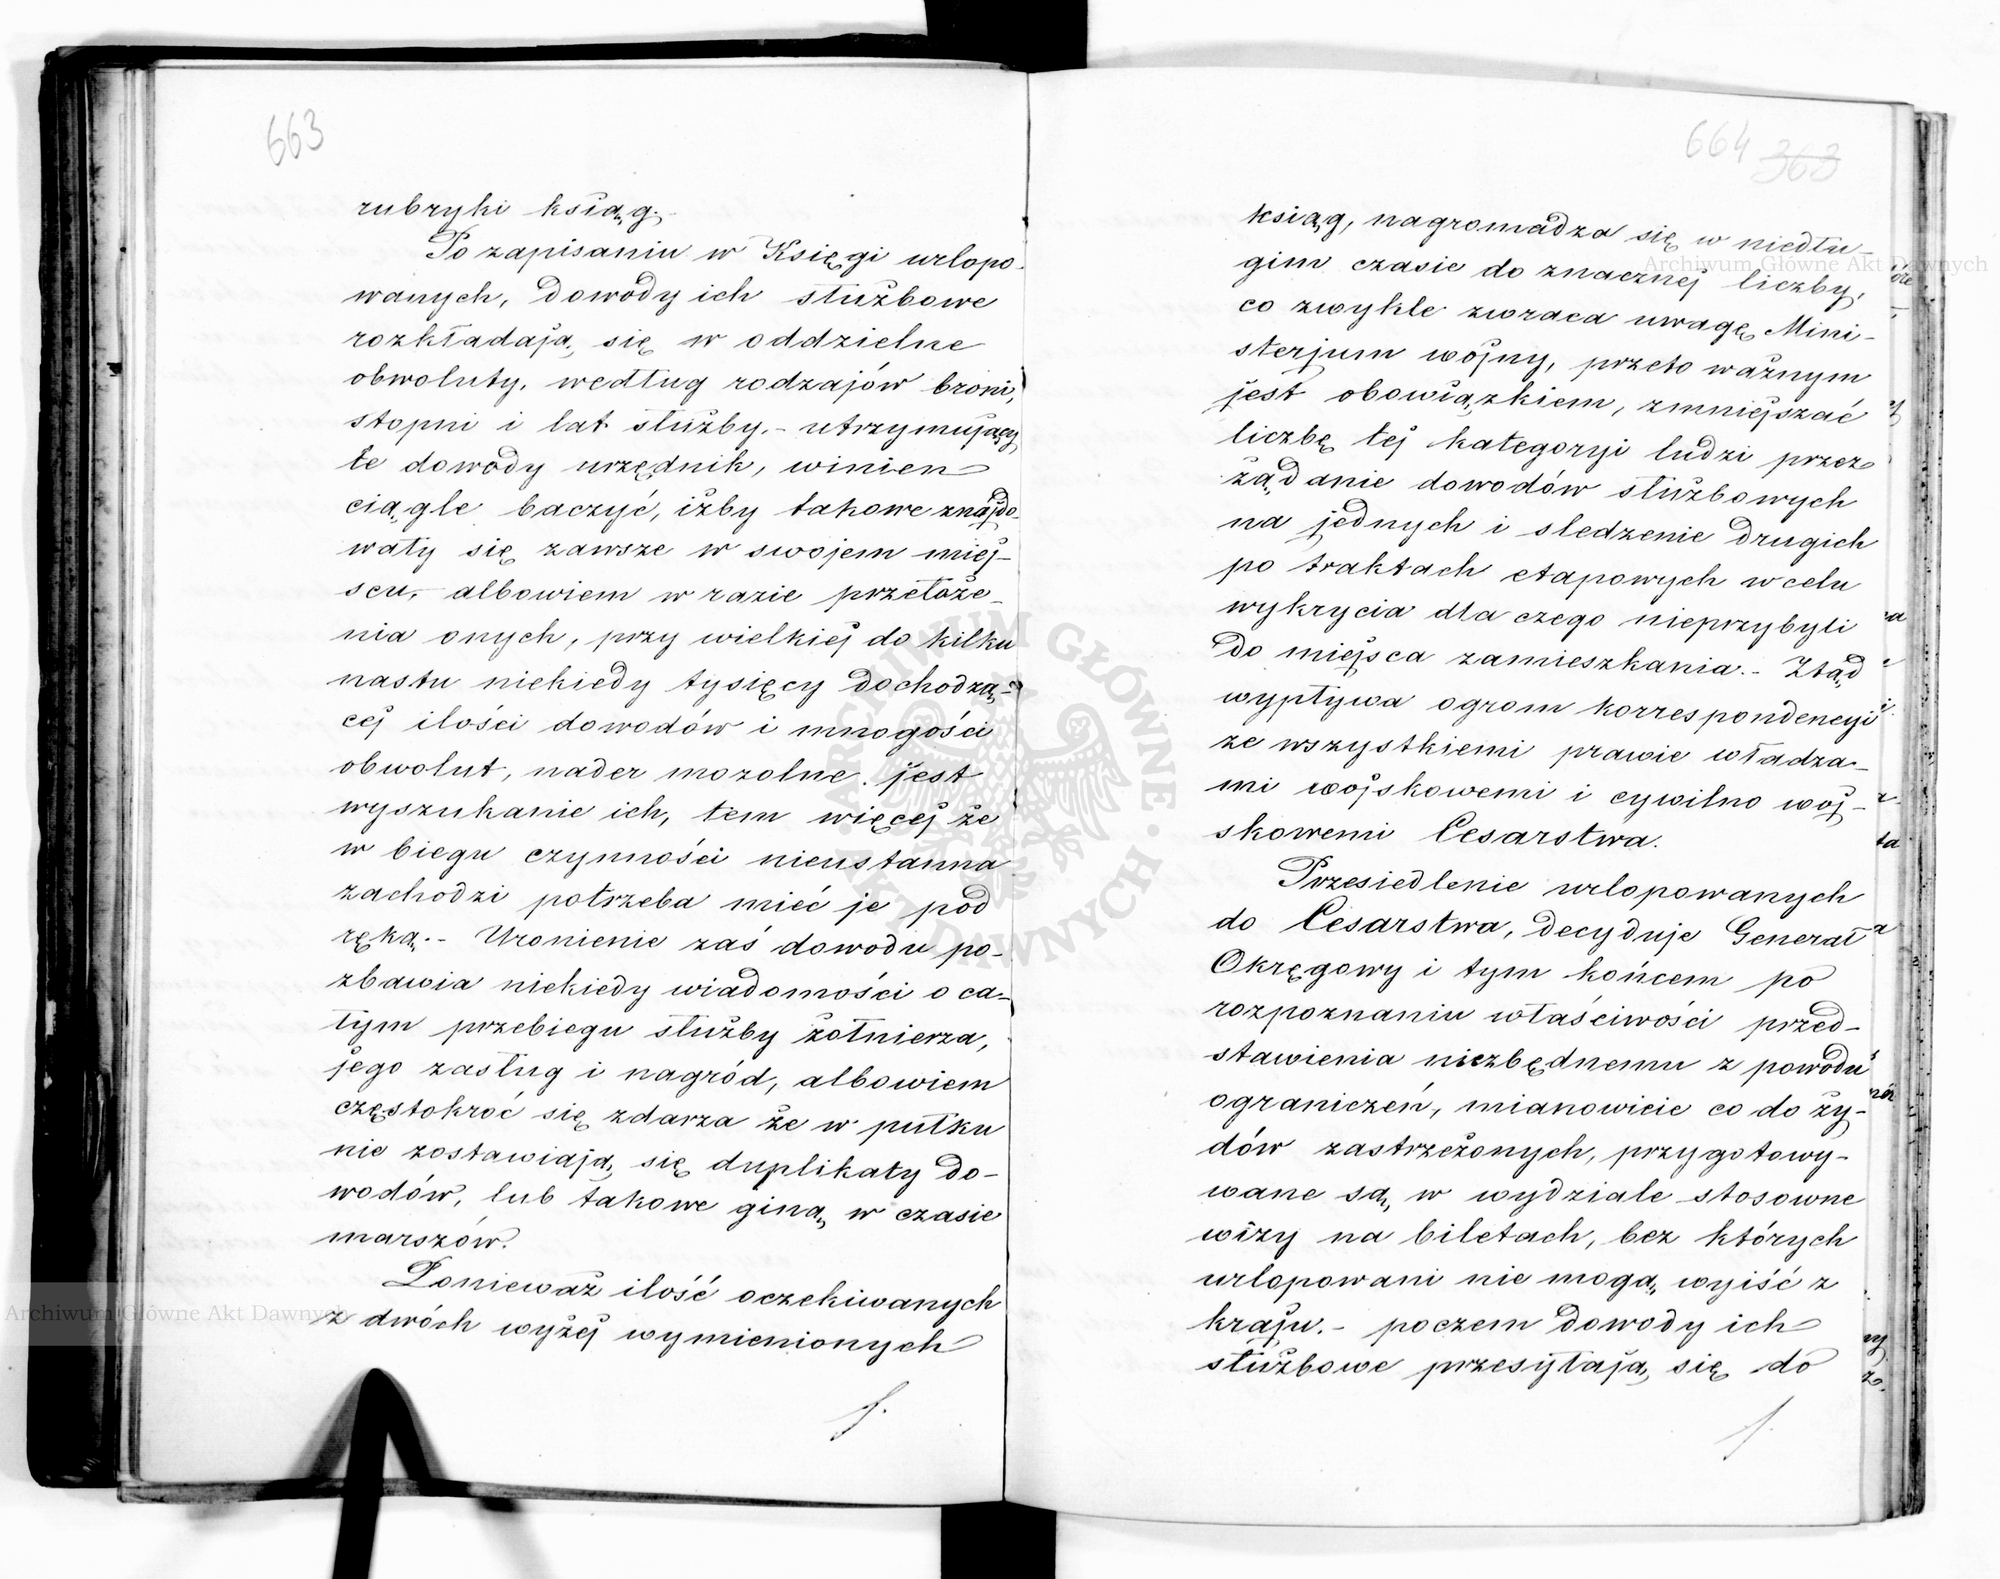 663
rubryki ksiąg.
Po zapisaniu w Księgi urlopo-
wanych, dowody ich służbowe
rozkładają się w oddzielne
obwoluty, według rodzajów broni,
stopni i lat służby.- utrzymujący
te dowody urzędnik, winien
ciągle baczyć, iżby takowe znajdo-
wały się zawsze w swojem miej-
scu, albowiem w razie przełoże-
nia onych, przy wielkiej do kilku
nastu niekiedy tysięcy dochodzą-
cej ilości dowodów i mnogości
obwolut, nader mozolne jest
wyszukanie ich, tem więcej że
w biegu czynności nieustanna
zachodzi potrzeba mieć je pod
ręką.- Uronienie zaś dowodu po-
zbawia niekiedy wiadomości o ca-
łym przebiegu służby żołnierza,
jego zasług i nagród, albowiem
częstokroć się zdarza że w pułku
nie zostawiają się duplikaty do-
wodów, lub takowe giną w czasie
marszów.
Ponieważ ilość oczekiwanych
z dwóch wyżej wymienionych
664 363
ksiąg, nagromadza się w niedłu-
gim czasie do znacznej liczby,
co zwykle zwraca uwagę Mini-
sterjum wojny, przeto ważnym
jest obowiązkiem, zmniejszać
liczbę tej kategoryi ludzi przez
żądanie dowodów służbowych
na jednych i sledzenie drugich
po traktach etapowych w celu
wykrycia dla czego nieprzybyli
do miejsca zamieszkania.- Ztąd
wypływa ogrom korrespondencyi
ze wszystkiemi prawie władza-
mi wojskowemi i cywilno woj-
skowemi Cesarstwa.
Przesiedlenie urlopowanych
do Cesarstwa, decyduje Generał
Okręgowy i tym końcem po
rozpoznaniu właściwości przed-
stawienia niezbędnemu z powodu
ograniczeń, mianowicie co do ży-
dów zastrzeżonych, przygotowy-
wane są w wydziale stosowne
wizy na biletach, bez których
urlopowani nie mogą wyiść z
kraju.- poczem dowody ich
służbowe przesyłają się do
Archiwum Główne Akt Dawnych
Archiwum Główne Akt Dawnych
ARCHIWUM GŁÓWNE AKT DAWNYCH